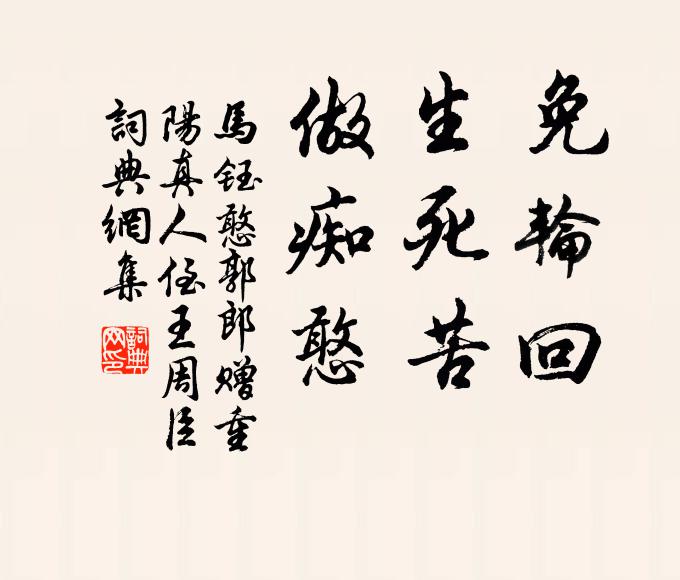 免輪回
生死苦
做痴憨
馬鈺憨郭郎贈重
陽真人侄王周臣
詞典網集
詞典網印